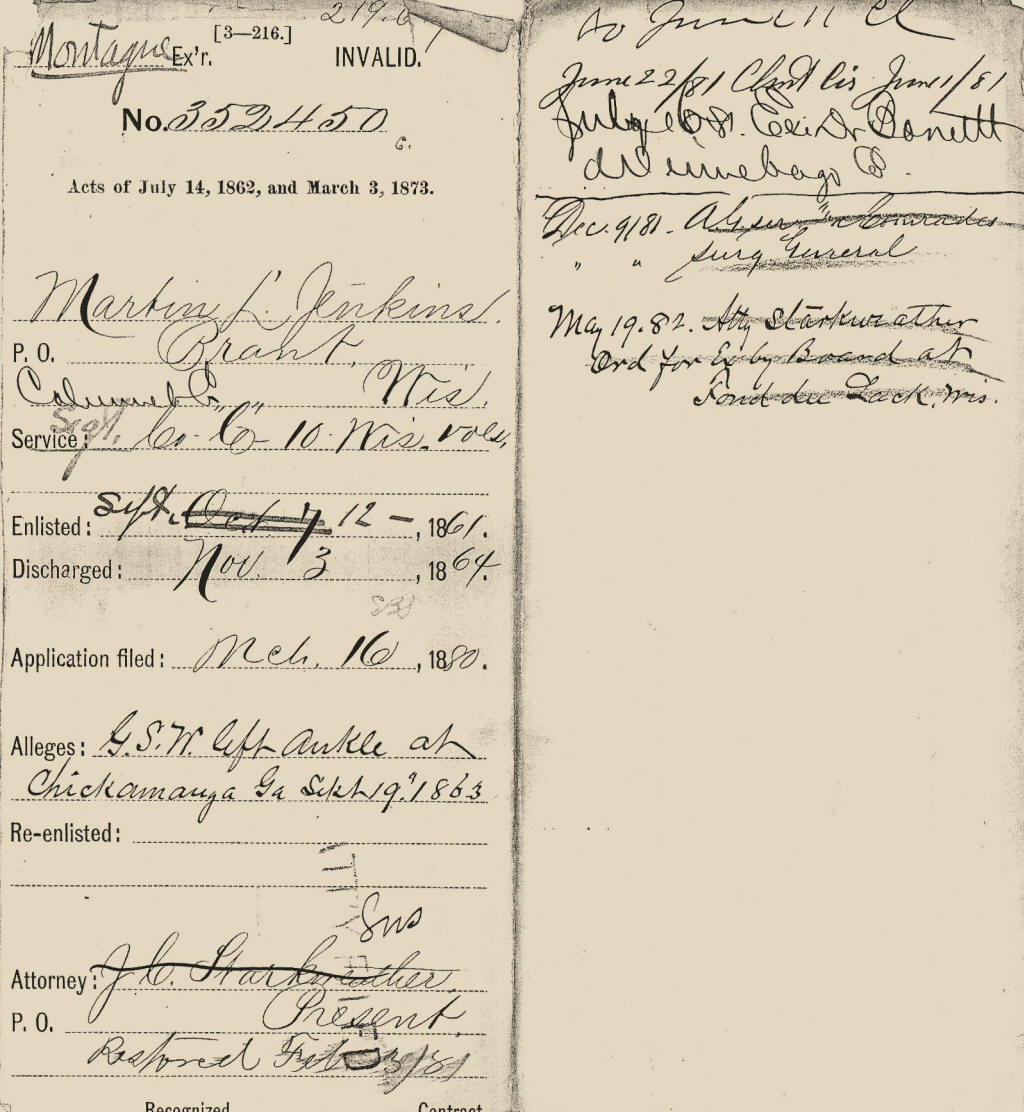 [3—216.]
Montague Ex'r. INVALID.
No. 352450
Acts of July 14, 1862, and March 3, 1873.
Martin L. Jenkins.
P. O. Brant,
Calumet Co. Wis.
Service: Sergt. Co. C 10 Wis. vols.
Enlisted: Sept. Oct 7 12 — , 1861.
Discharged: Nov. 3 , 1864.
Application filed: Mch. 16 , 1880.
Alleges: G.S.W. left Ankle at
Chickamauga Ga Sept 19" 1863
Re-enlisted:
Attorney: J. C. Starkweather.
P. O. Present,
Restored Feb 3/81
Recognized Contract
to June 11
June 22/81 Clmt Cir June 1/81
July 81. Ex Dr
Winnebago Co.
Dec. 9/81. Comrades
" " Surg General
May 19. 82. Atty Starkweather
Ord for Ex by Board at
Fond du Lack, Wis.